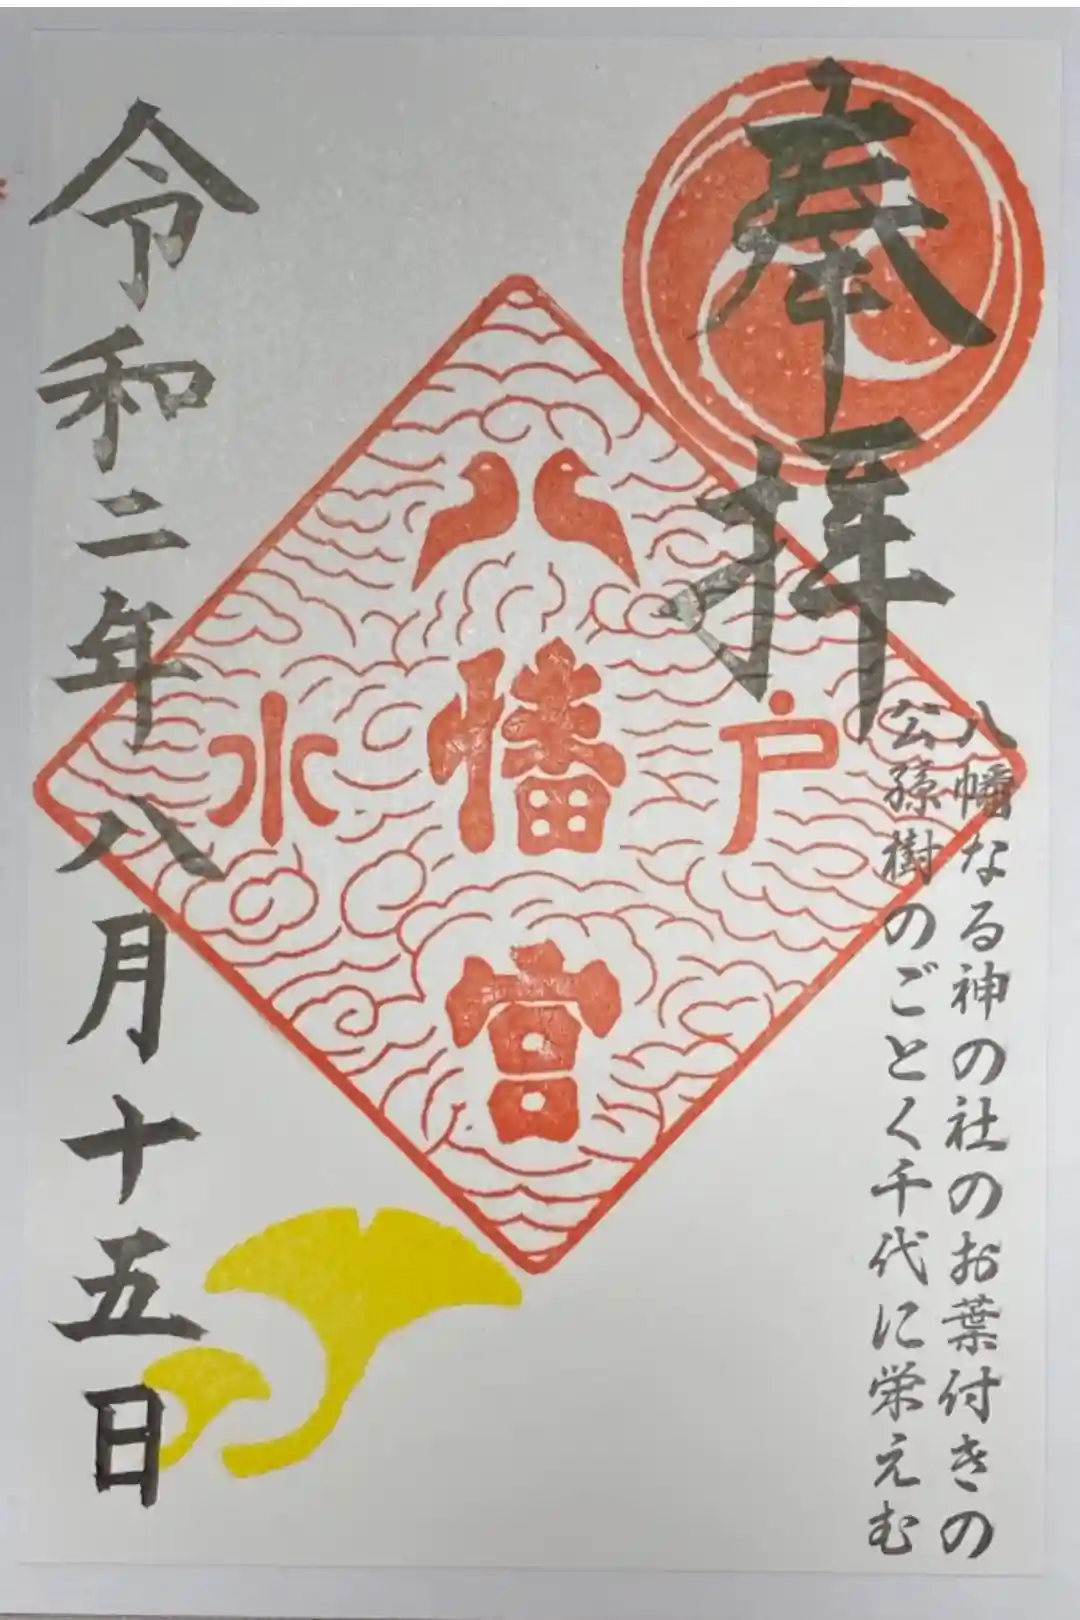 奉拝
八幡なる神の社のお葉付きの
公孫樹のごとく千代に栄えむ
水戸
八幡宮
令和二年八月十五日